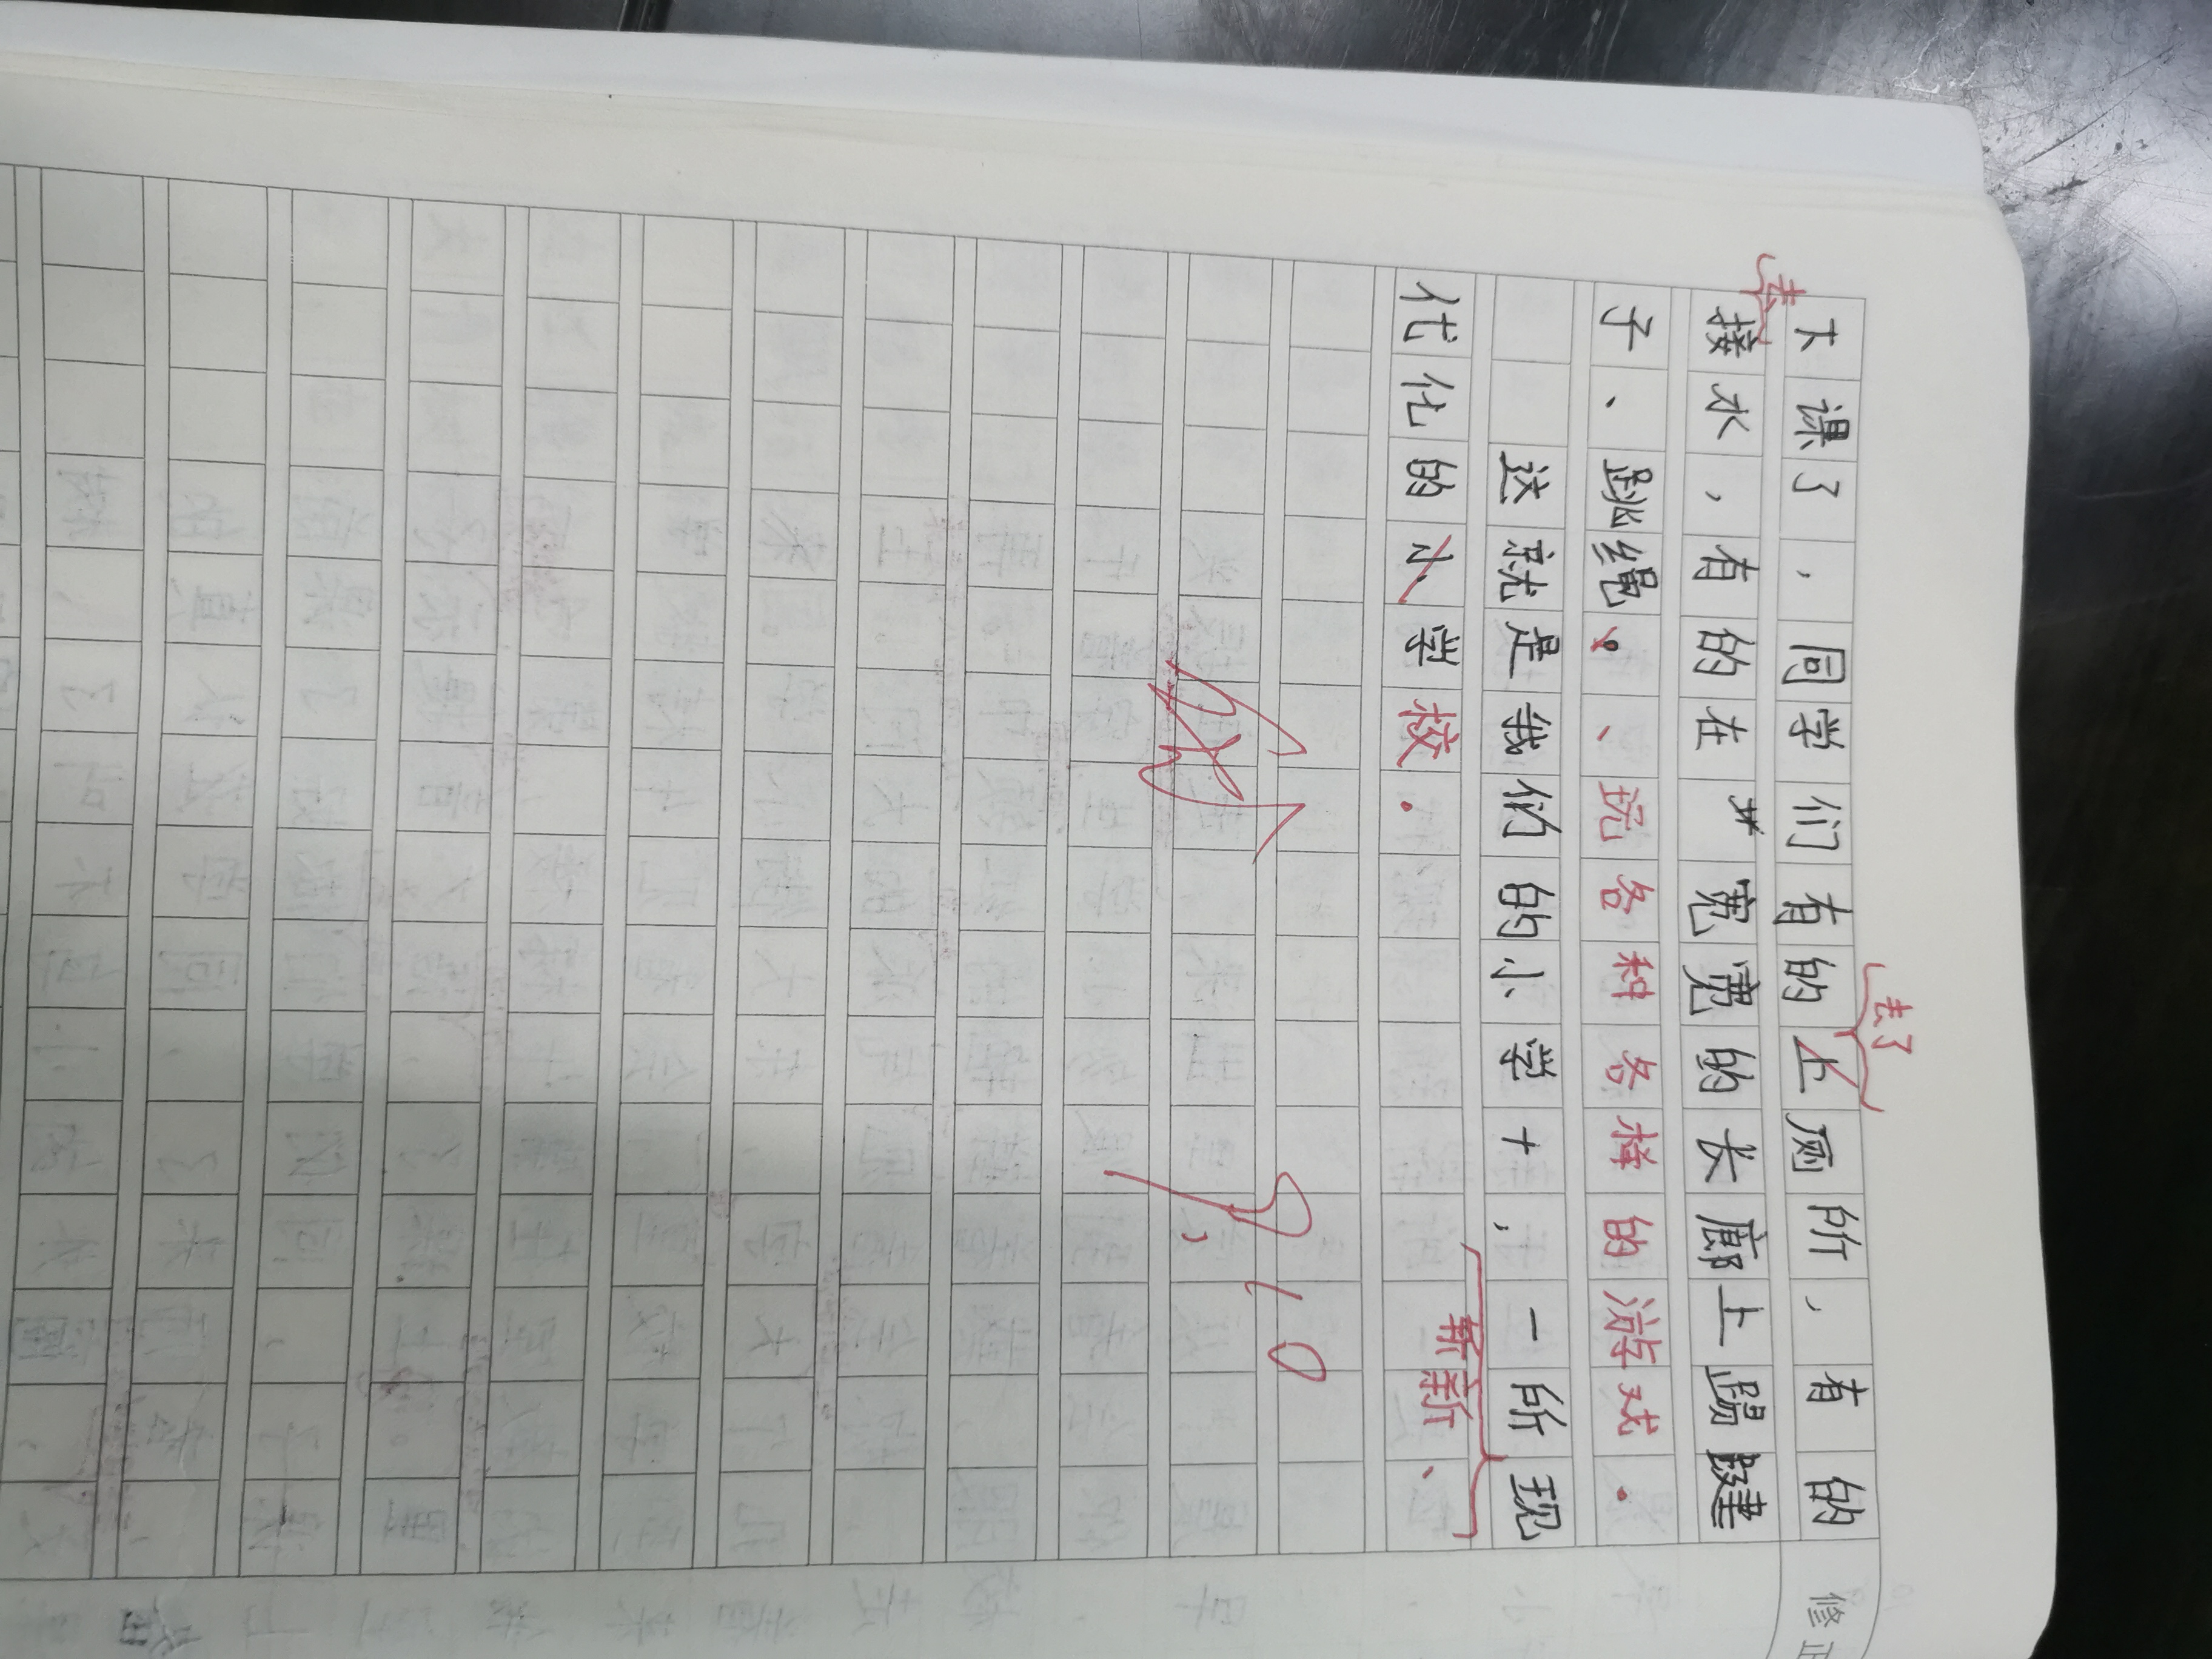 去了
下课了，同学们有的上厕所，有的
去
接水，有的在宽宽的长廊上踢毽
子、跳绳、玩各种各样的游戏。
这就是我们的小学，一所现
崭新、
代化的小学校。
9.10
修正